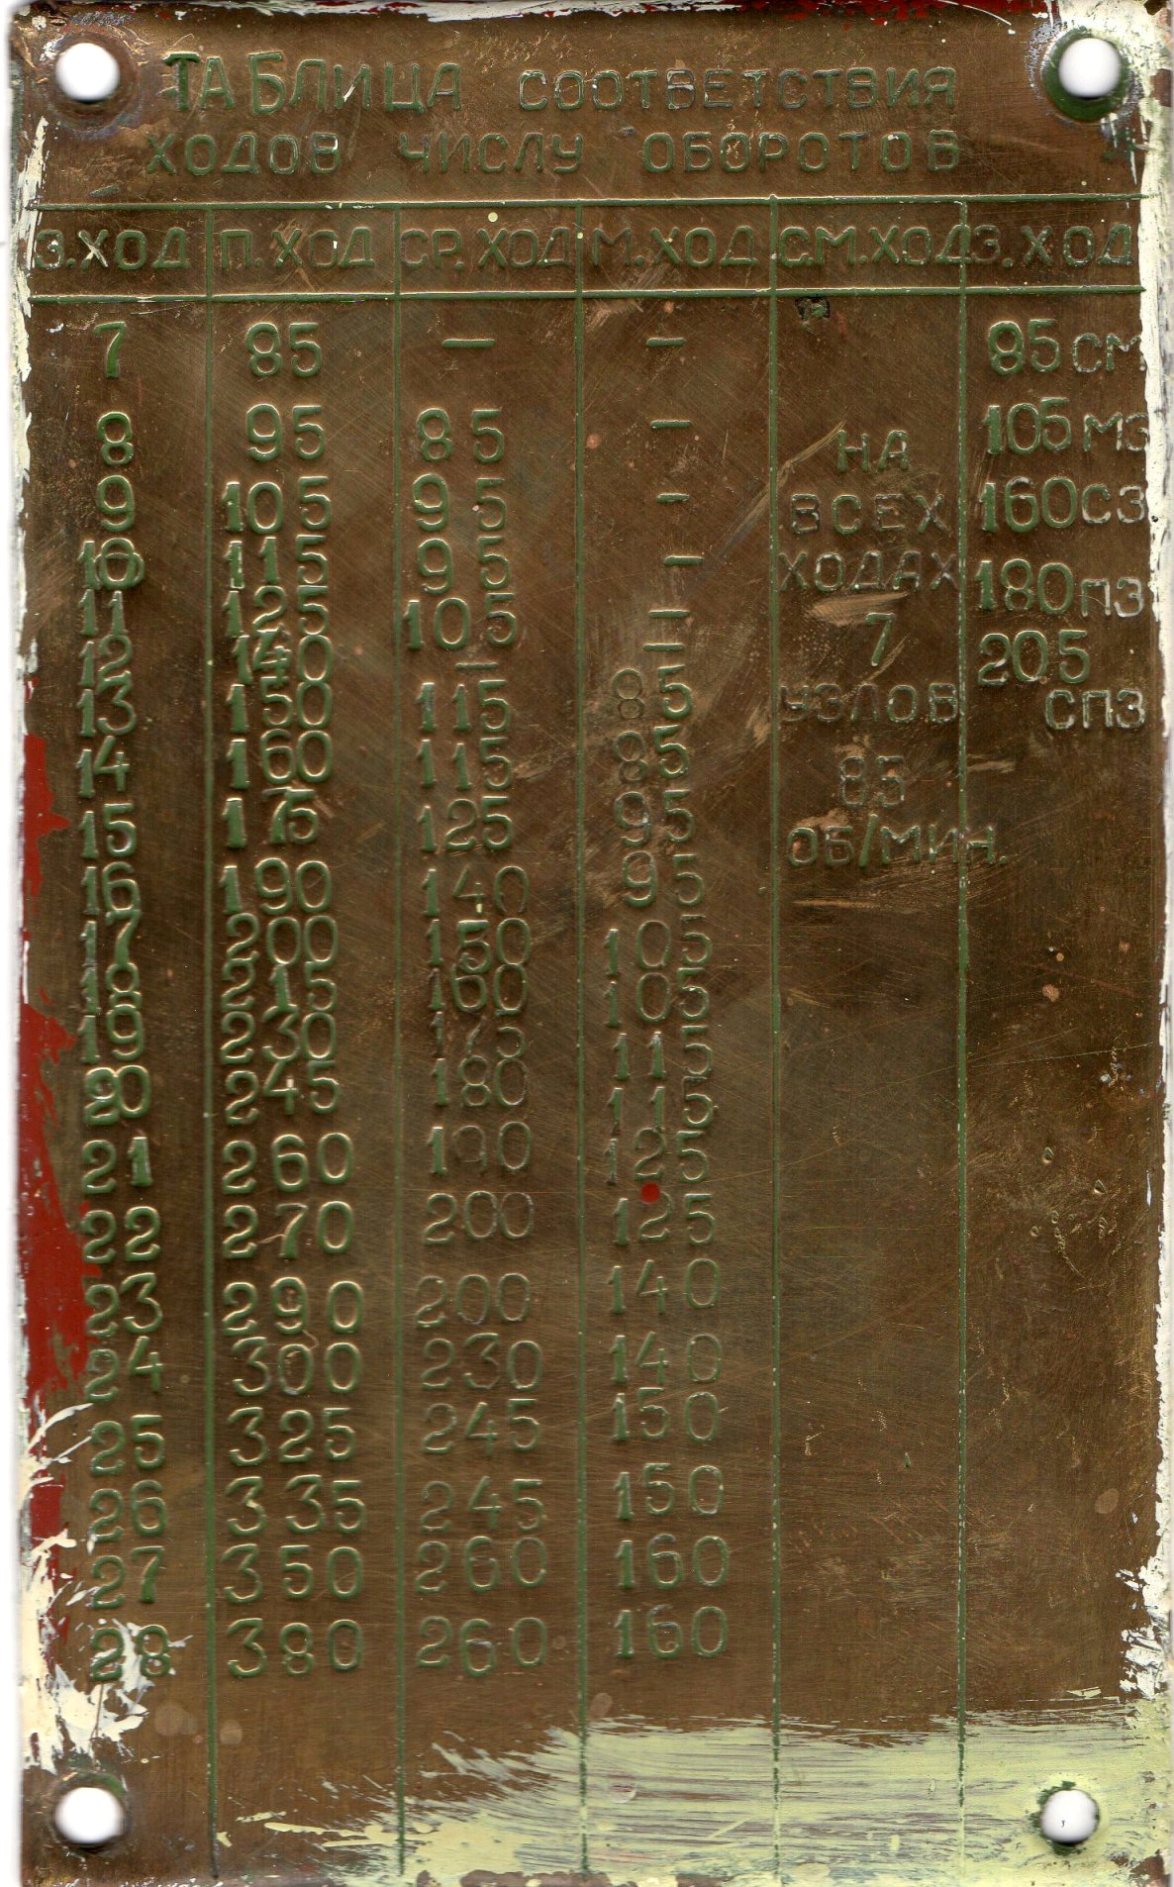 ТАБЛИЦА СООТВЕТСТВИЯ
ХОДОВ ЧИСЛУ ОБОРОТОВ
З.ХОД П.ХОД СР.ХОД М.ХОД С.М.ХОД З.ХОД
7 85 — — 85 СМ
8 95 85 — НА 105 МЗ
9 105 95 — ВСЕХ 160 СЗ
10 115 95 — ХОДАХ 180 ПЗ
11 125 105 — 7 205
12 140 — — УЗЛОВ СПЗ
13 150 115 85
14 160 115 85 85
15 175 125 95 ОБ/МИН.
16 190 140 95
17 200 150 105
18 215 160 105
19 230 175 115
20 245 180 115
21 260 190 125
22 270 200 125
23 290 200 140
24 300 230 140
25 325 245 150
26 335 245 150
27 350 260 160
28 380 260 160